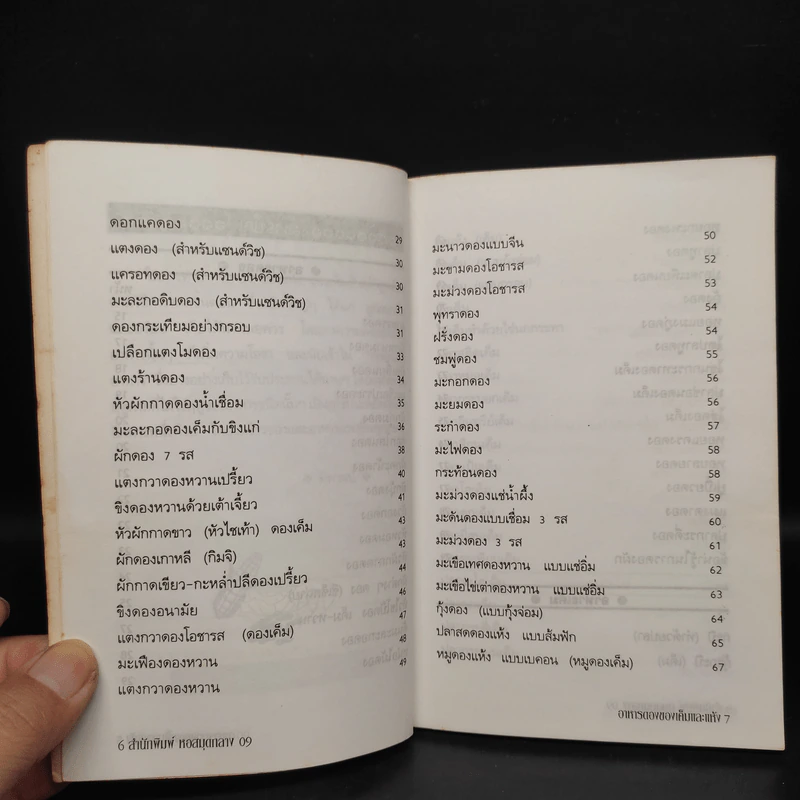 ดอกแคดอง 29
แตงดอง (สำหรับแซนด์วิช) 30
แครอทดอง (สำหรับแซนด์วิช) 30
มะละกอดิบดอง (สำหรับแซนด์วิช) 31
ดองกระเทียมอย่างกรอบ 31
เปลือกแตงโมดอง 33
แตงร้านดอง 34
หัวผักกาดดองน้ำเชื่อม 35
มะละกอดองเค็มกับขิงแก่ 36
ผักดอง 7 รส 38
แตงกวาดองหวานเปรี้ยว 40
ขิงดองหวานด้วยเต้าเจี้ยว 41
หัวผักกาดขาว (หัวไชเท้า) ดองเค็ม 43
ผักดองเกาหลี (กิมจิ) 43
ผักกาดเขียว-กะหล่ำปลีดองเปรี้ยว 44
ขิงดองอนามัย 46
แตงกวาดองโอชารส (ดองเค็ม) 47
มะเฟืองดองหวาน 48
แตงกวาดองหวาน 49
6 สำนักพิมพ์ หอสมุดกลาง 09
มะนาวดองแบบจีน 50
มะขามดองโอชารส 52
มะม่วงดองโอชารส 53
พุทราดอง 54
ฝรั่งดอง 54
ชมพู่ดอง 55
มะกอกดอง 56
มะยมดอง 56
ระกำดอง 57
มะไฟดอง 58
กระท้อนดอง 58
มะม่วงดองแช่น้ำผึ้ง 59
มะดันดองแบบเชื่อม 3 รส 60
มะม่วงดอง 3 รส 61
มะเขือเทศดองหวาน แบบแช่อิ่ม 62
มะเขือไข่เต่าดองหวาน แบบแช่อิ่ม 63
กุ้งดอง (แบบกุ้งจ่อม) 64
ปลาสดดองแห้ง แบบส้มฟัก 65
หมูดองแห้ง แบบเบคอน (หมูดองเค็ม) 67
อาหารดองของเค็มและแห้ง 7